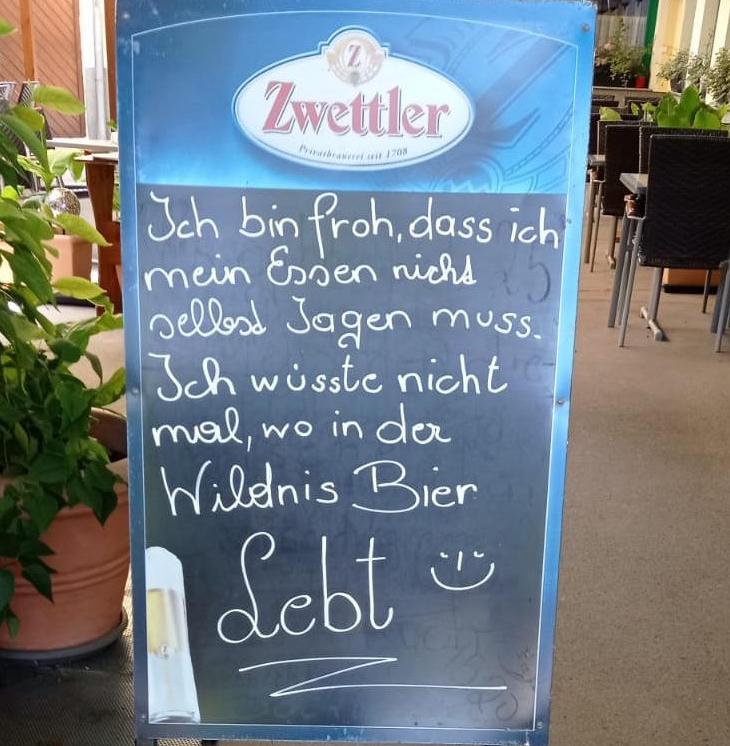 Z
Zwettler
Privatbrauerei seit 1708
Ich bin froh, dass ich
mein Essen nicht
selbst Jagen muss.
Ich wüsste nicht
mal, wo in der
Wildnis Bier
Lebt